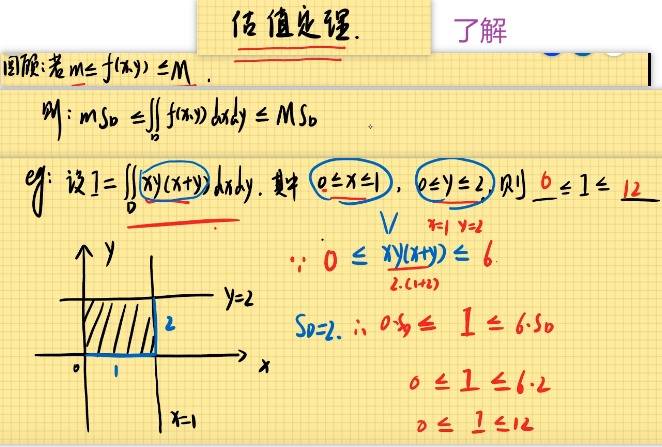 估值定理.
了解
回顾:若 m≤f(x,y)≤M.
则: mS_D ≤ ∬_D f(x,y) dxdy ≤ MS_D
eg: 设 I = ∬_D xy(x+y) dxdy. 其中 0≤x≤1, 0≤y≤2, 则 0 ≤ I ≤ 12
x=1 y=2
∵ 0 ≤ xy(x+y) ≤ 6.
2·(1+2)
S_D=2. ∴ 0·S_D ≤ I ≤ 6·S_D
0 ≤ I ≤ 6·2
0 ≤ I ≤ 12
y
y=2
2
0
1
x
x=1